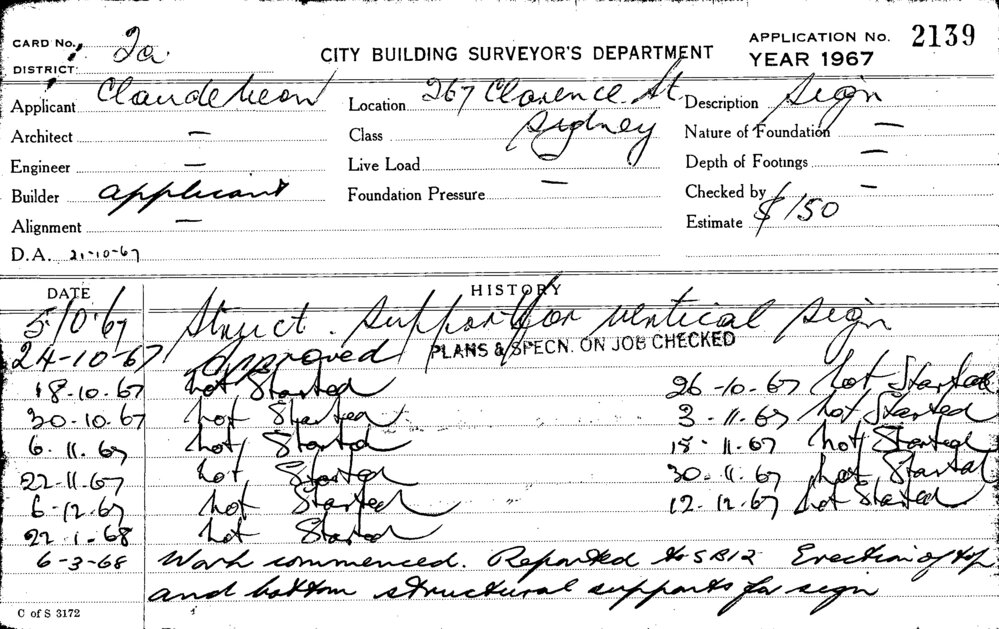 CARD No. 2a.
CITY BUILDING SURVEYOR'S DEPARTMENT
APPLICATION No. 2139
YEAR 1967
DISTRICT
Applicant Claude Neon Location 267 Clarence St Description Sign
Sydney
Architect — Class Nature of Foundation —
Engineer — Live Load — Depth of Footings —
Builder applicant Foundation Pressure — Checked by —
Alignment — Estimate $150
D.A. 21-10-67
DATE HISTORY
5/10.67 Struct. support for vertical sign
24-10-67 Approved PLANS & SPECN. ON JOB CHECKED
18-10.67 not Started 26-10.67 not Started
30-10.67 not Started 3-11.67 not Started
6.11.67 not Started 15-11.67 not Started
22-11.67 not Started 30-11.67 not Started
6-12.67 not Started 12.12.67 not Started
22.1.68 not Started
6-3-68 Work commenced. Reported to SB12 Erection of top
and bottom structural supports for sign
C of S 3172